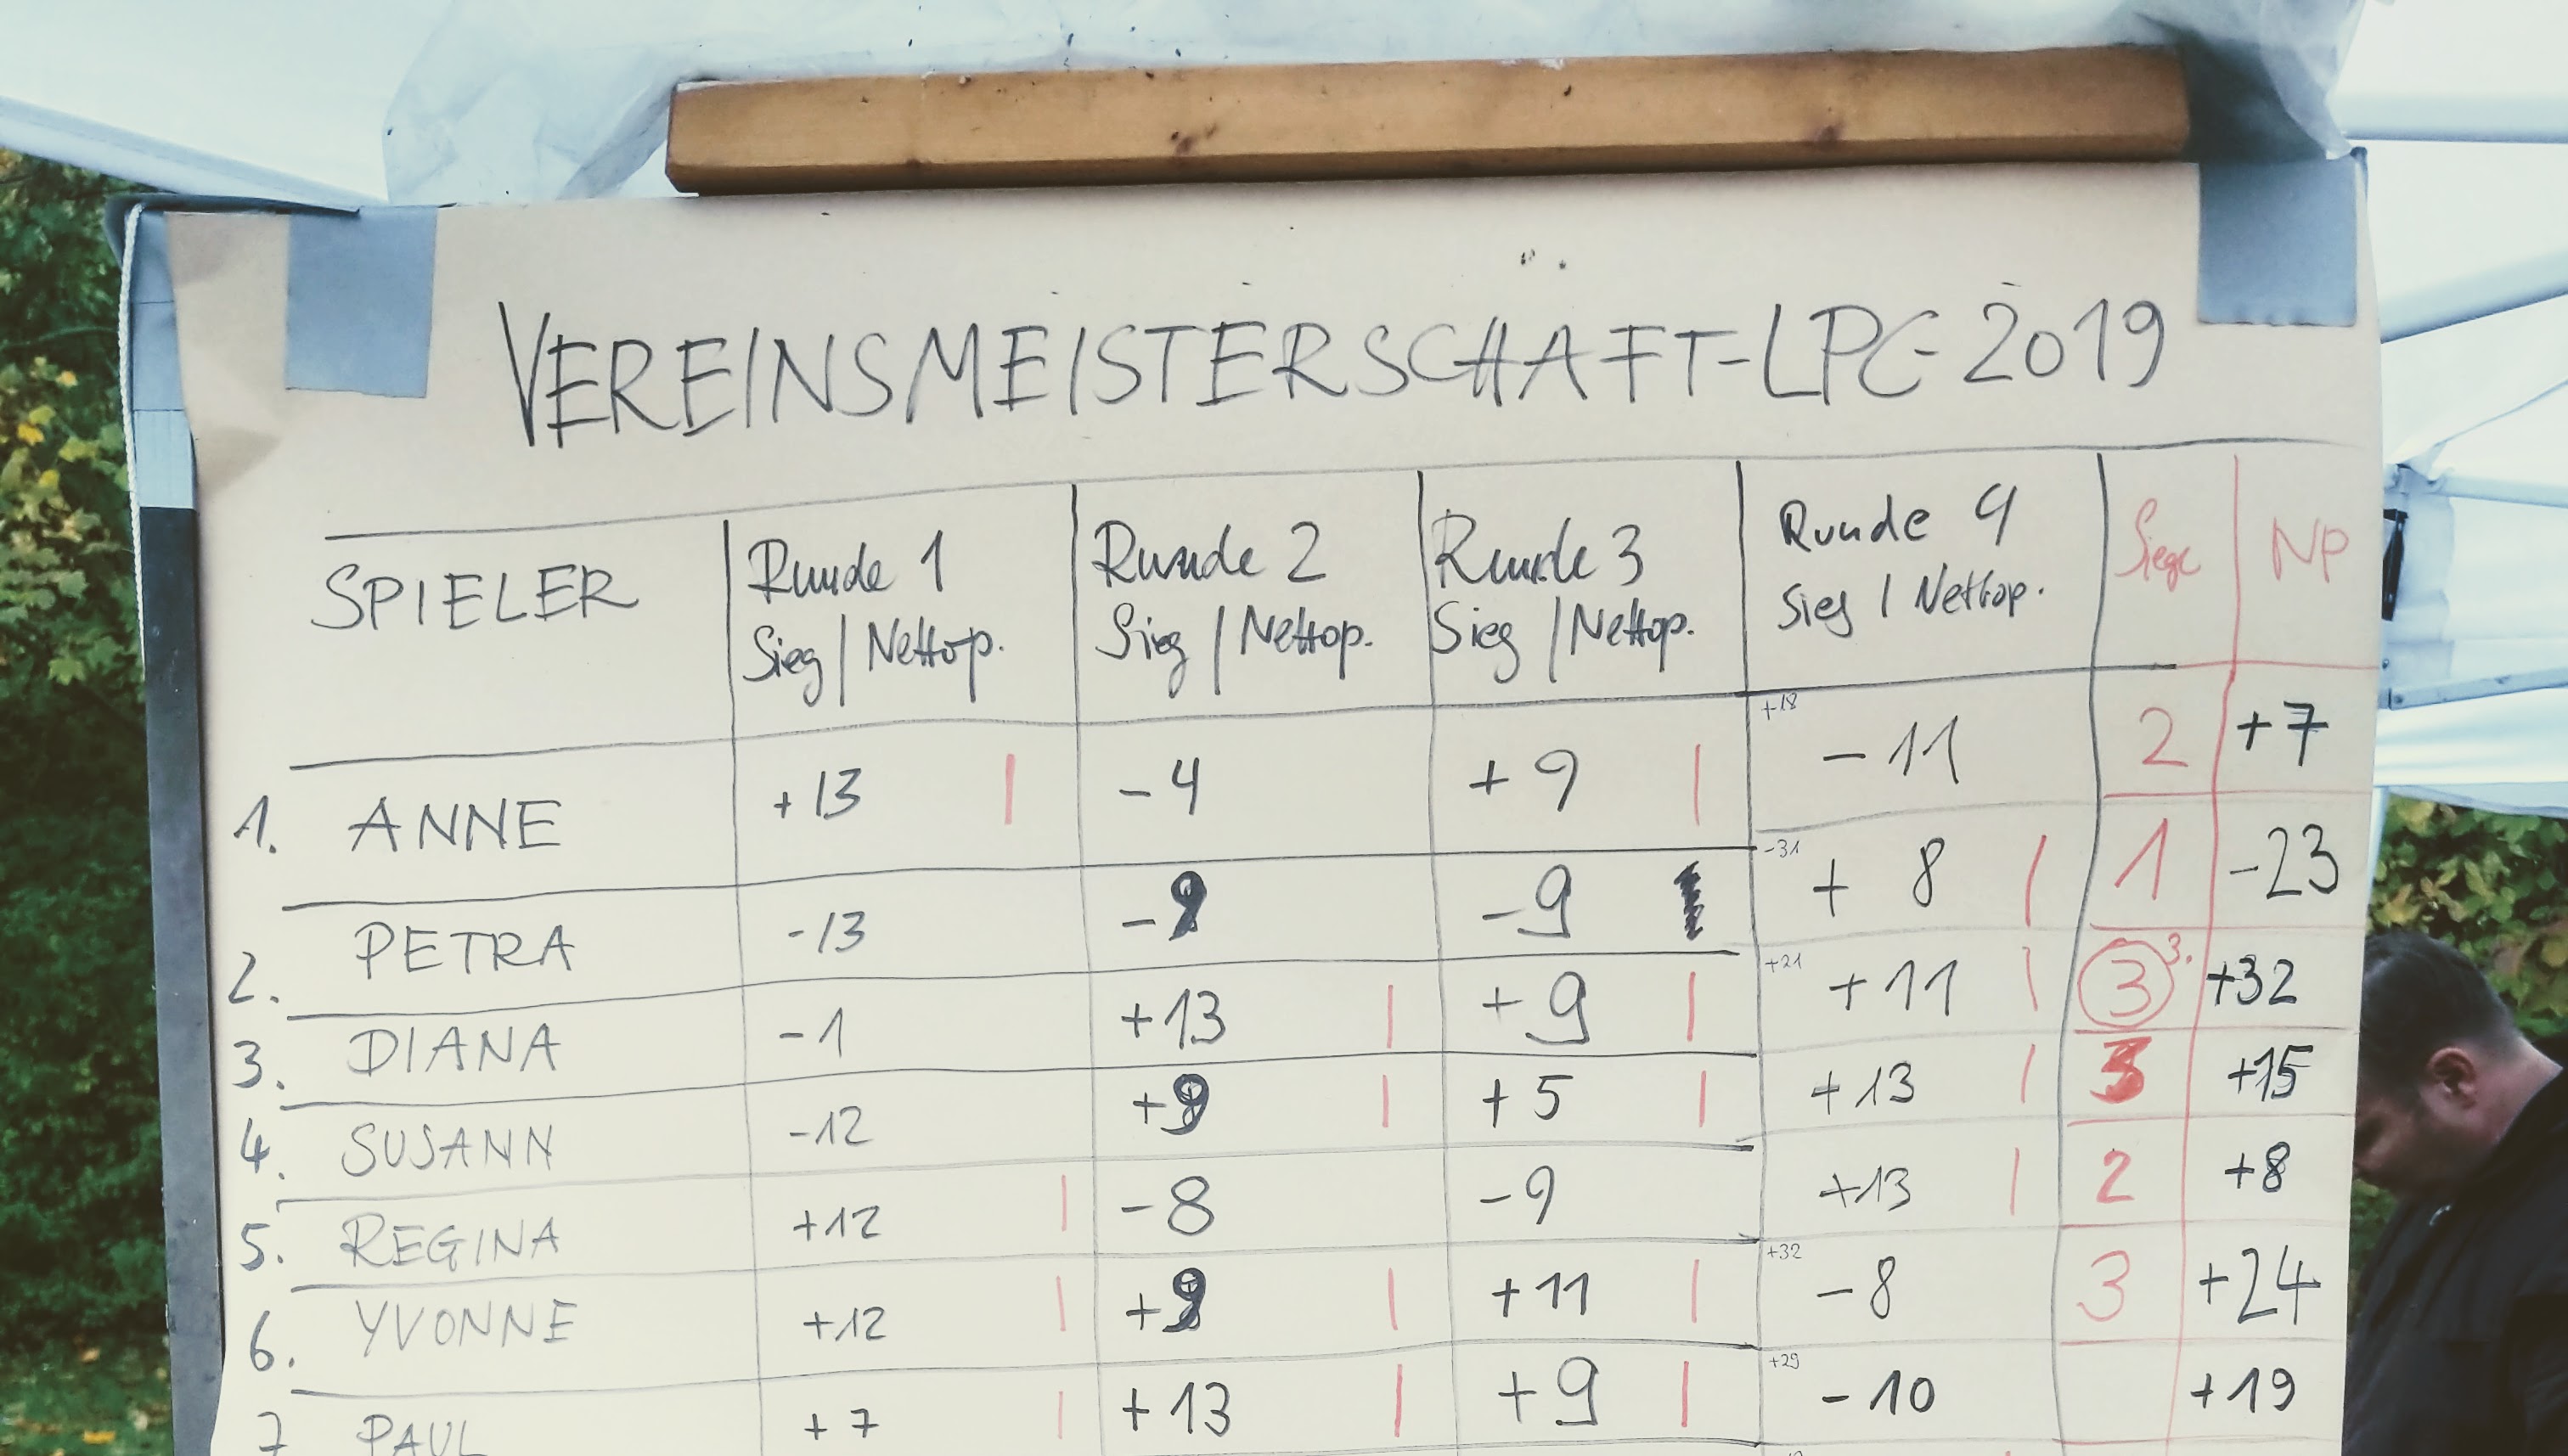 VEREINSMEISTERSCHAFT-LPC-2019
SPIELER Runde 1 Runde 2 Runde 3 Runde 4 Siege NP
Sieg / Nettop. Sieg / Nettop. Sieg / Nettop. Sieg / Nettop.
1. ANNE +13 | -4 +9 | +18 -11 2 +7
2. PETRA -13 -9 -9 -31 +8 | 1 -23
3. DIANA -1 +13 | +9 | +21 +11 | 3 3. +32
4. SUSANN -12 +9 | +5 | +13 | 3 +15
5. REGINA +12 | -8 -9 +13 | 2 +8
6. YVONNE +12 | +9 | +11 | +32 -8 3 +24
7 PAUL +7 | +13 | +9 | +29 -10 +19